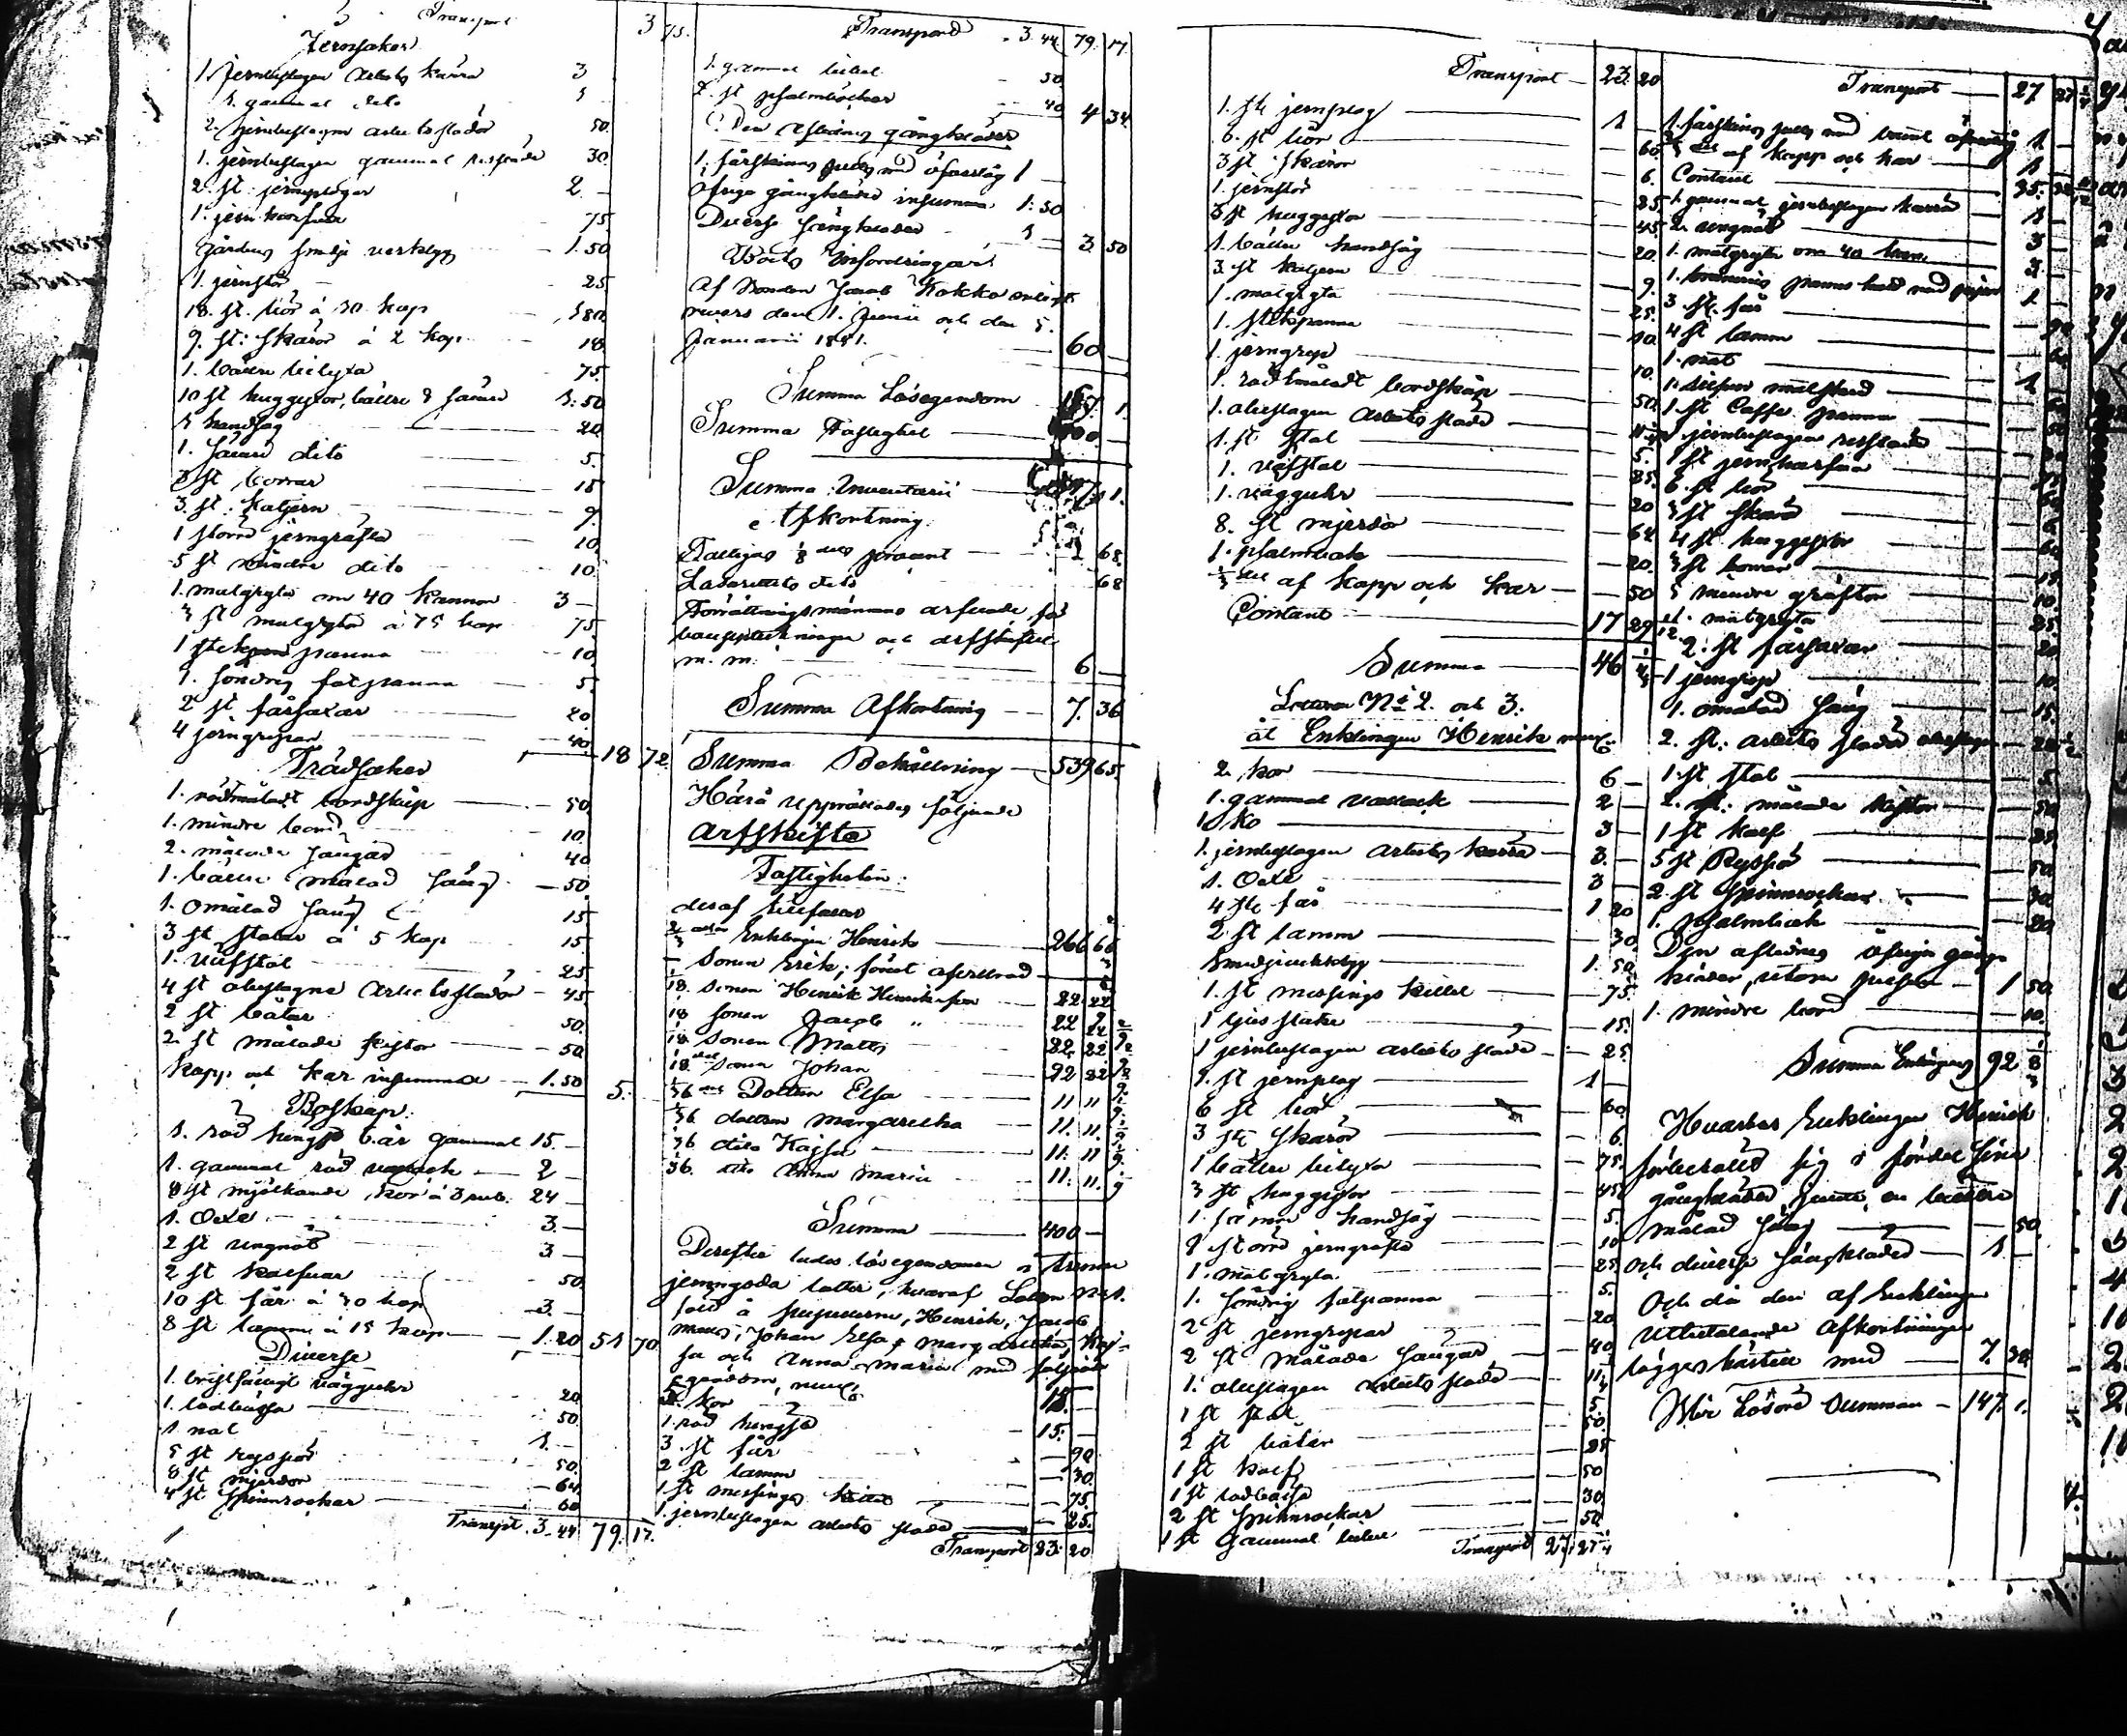 Transport 3 75.
Jernsaker
1. jernbeslagen arbets kärra 3
1. gammal dito 1
2. jernbeslagne arbetsslädor 50.
1. jernbeslagen gammal 30.
2. st. jernplogar 2 –
1. jern harfva 75.
Gårdens smidje verktyg 1.50
1. jernstör 25
18. st. liör à 10 kop 1.80.
9. st: skäror à 2 kop. 18
1. bättre bilyxa 75.
10 st huggyxor, bättre & sämre 1:50
1 handsåg 20
1. sämre dito 5.
3 st borrar 15
3. st. katjern 9.
1 större jerngräfta 10.
5 st mindre dito 10
1. malgryta om 40 kannor 3 –
3 st malgrytor à 75 kop 75.
1 stekpanna 10.
1. söndrig fatpanna 5.
2 st fårsaxar 20
4 jerngrepar 40. 18 72.
Trädsaker
1. rödmåladt bordskåp 50.
1. mindre bord 10.
2. målade sängar 40
1. bättre målad säng 50.
1. omålad säng 15
3 st stolar à 5 kop 15
1. väfstol 25
4 st obeslagne arbetsslädor 45
2 st båtar 50.
2. st målade kistor 50.
Kapp och kar insumma 1.50 5.
Boskap:
1. röd hingst 6 år gammal 15. –
1. gammal röd vallack 2 –
8 st mjölkande kor à 3 rub. 24 –
1. Oxe 3. –
2 st ungnöt 3 –
2 st kalfvar 50.
10 st får à 30 kop 3. –
8 st lamm à 15 kop 1.20 51 70
Diverse
1. väggukr 20
1. lodbössa 50.
1 not 1. –
5 st ryssjor 50.
8 st mjerdor 64
4 st spinnrockar 60
Transpt. 3.44 79. 17.
Transport 3 44. 79. 17.
1. gammal bibel 50.
2. st psalmböcker 40 4 34.
Den Aflidnes gångkläder
1. fårskinns päls med öfverslag 1 –
öfrige gångkläder insumma 1:50
Diverse sängkläder 1 – 3 50
Boets Infordringar
Af bonden Jacob Kokko enligt
revers den 1. Junii och den 5.
Januarii 60 –
Summa Lösegendom 1.
Summa Fastighet –
Summa Inventarii 1.
Afkortning
Fattigas 1/8 dels procent 68.
Lasarettets dito 68
Förrättningsmännens arfvode för
bouppteckningen och arfskiftet
m. m. 6 –
Summa Afkortning 7. 36
Summa Behållning 539 65.
Härå upprättades följande
Arfskifte
Fastigheten:
deraf tillfaller
Enklingen Henrik 266 66
Sonen Erik, förut afvittrad
18. sonen Henrik Henriksson 22. 22
18 sonen Jacob " 22 22
18 sonen Matts 22. 22.
18 sonen Johan 22 22
36 Dottren Elsa 11 11
36 dottren Margaretha 11. 11.
36 dito Kajsa 11. 11
36. dito Anna Maria 11. 11.
Summa 400 –
Derefter lades lösegendomen i trenne
jemngoda lotter, hvaraf Lotten No 1.
föll å pupillerne, Henrik, Jacob
Matts, Johan Elsa, Margaretha, Kaj-
sa och Anna Maria med följande
egendom, neml.
kor –
1. röd hingst 15. –
3. st får 90
2 st lamm 30.
1 st messings kittel 75.
1. jernbeslagen arbets släde 25.
Transport 23. 20
Transport 23. 20
1. st jernplog 1 –
6. st liör 60.
3 st skäror 6.
1. jernstör 25.
3 st huggyxor 45
1. bättre handsåg 20
3. st katjern 9.
1. malgryta 25.
1. stekpanna 10.
1. jerngrep 10.
1. rödmåladt bordskåp 50.
1. obeslagen arbets släde
1. st stol 5.
1. väfstol 25.
1. väggukr 20
8. st mjerdor 64
1. psalmbok 20.
1/3 del af kapp och kar 50
Contant 17 29
Summa 46
Lotterne No 2. och 3.
åt Enklingen Henrik neml.
2. kor 6 –
1. gammal vallack 2 –
1 Ko 3 –
1. jernbeslagen arbets kärra 3. –
1. Oxe 3 –
4 st får 1 20
2 st lamm 30.
Smidjeverktyg 1. 50.
1. st messings kittel 75.
1 ljus stake 15.
1 jernbeslagen arbets släde 25.
1. st jernplog 1 –
6 st liör 60.
3 st skäror 6.
1 bättre bilyxa 75.
3 st huggyxor 45
1. sämre handsåg 5.
1 större jerngräfta 10
1. malgryta 25
1. söndrig fatpanna 5.
2 st jerngrepar 20
2 st målade sängar 40
1. obeslagen arbets släde
1 st stol 5.
2 st båtar 50.
1 st kalf 25
1 st lodbössa 50
2 st spinnrockar 30
1 st gammal bibel 50.
Transport 27. 27
Transport 27 27
1. fårskinns päls med öfverslag 1 –
af kapp och kar 1
Contant 35.
1. gammal jernbeslagen kärra 1 –
2. ungnöt 3 –
1. malgryta om 40 kannor 3 –
1. brännvins panna 1 –
3 st. får 90
4 st lamm 60
1. not 1 –
1 st Caffe panna
1 jernbeslagen 30
1 st jernharfva 75
6. st liör 60
3 st skäror 6
4 st. huggyxor 60
3 st borrar 15
5 mindre gräftor 10.
1. malgryta 25
2: st fårsaxar 20
1 jerngrep 10.
1. omålad säng 15.
2. st: arbets slädor
1 st stol 5.
2. st: målade kistor 50
1 st kalf 25
5 st Ryssjor 50
2. st Spinnrockar 30
1. psalmbok 20.
Den aflidnes öfriga gång-
kläder, utom pelsen 1 50.
1. mindre bord 10.
Summa Enklingens 92
Hvarhos Enklingen Henrik
förbehåller sig i fördel sine
gångkläder, samt en bättre
målad säng 50.
och diverse sängkläder 1 –
Och då den af Enklingen
utbetalande Afkortningen
lägges härtill med 7. 36.
Blir Lösöre Summan 147. 1.